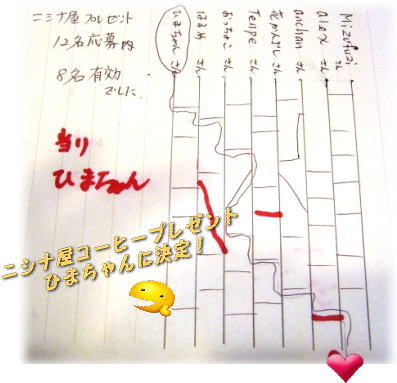 ニシナ屋プレゼント
12名応募内
8名有効
でした
当り
ひまちゃん
ひまちゃんさん
はるめさん
おっちょこさん
Tempeさん
花かんざしさん
anchanさん
alexさん
Mizofujiさん
ニシナ屋コーヒープレゼント
ひまちゃんに決定!